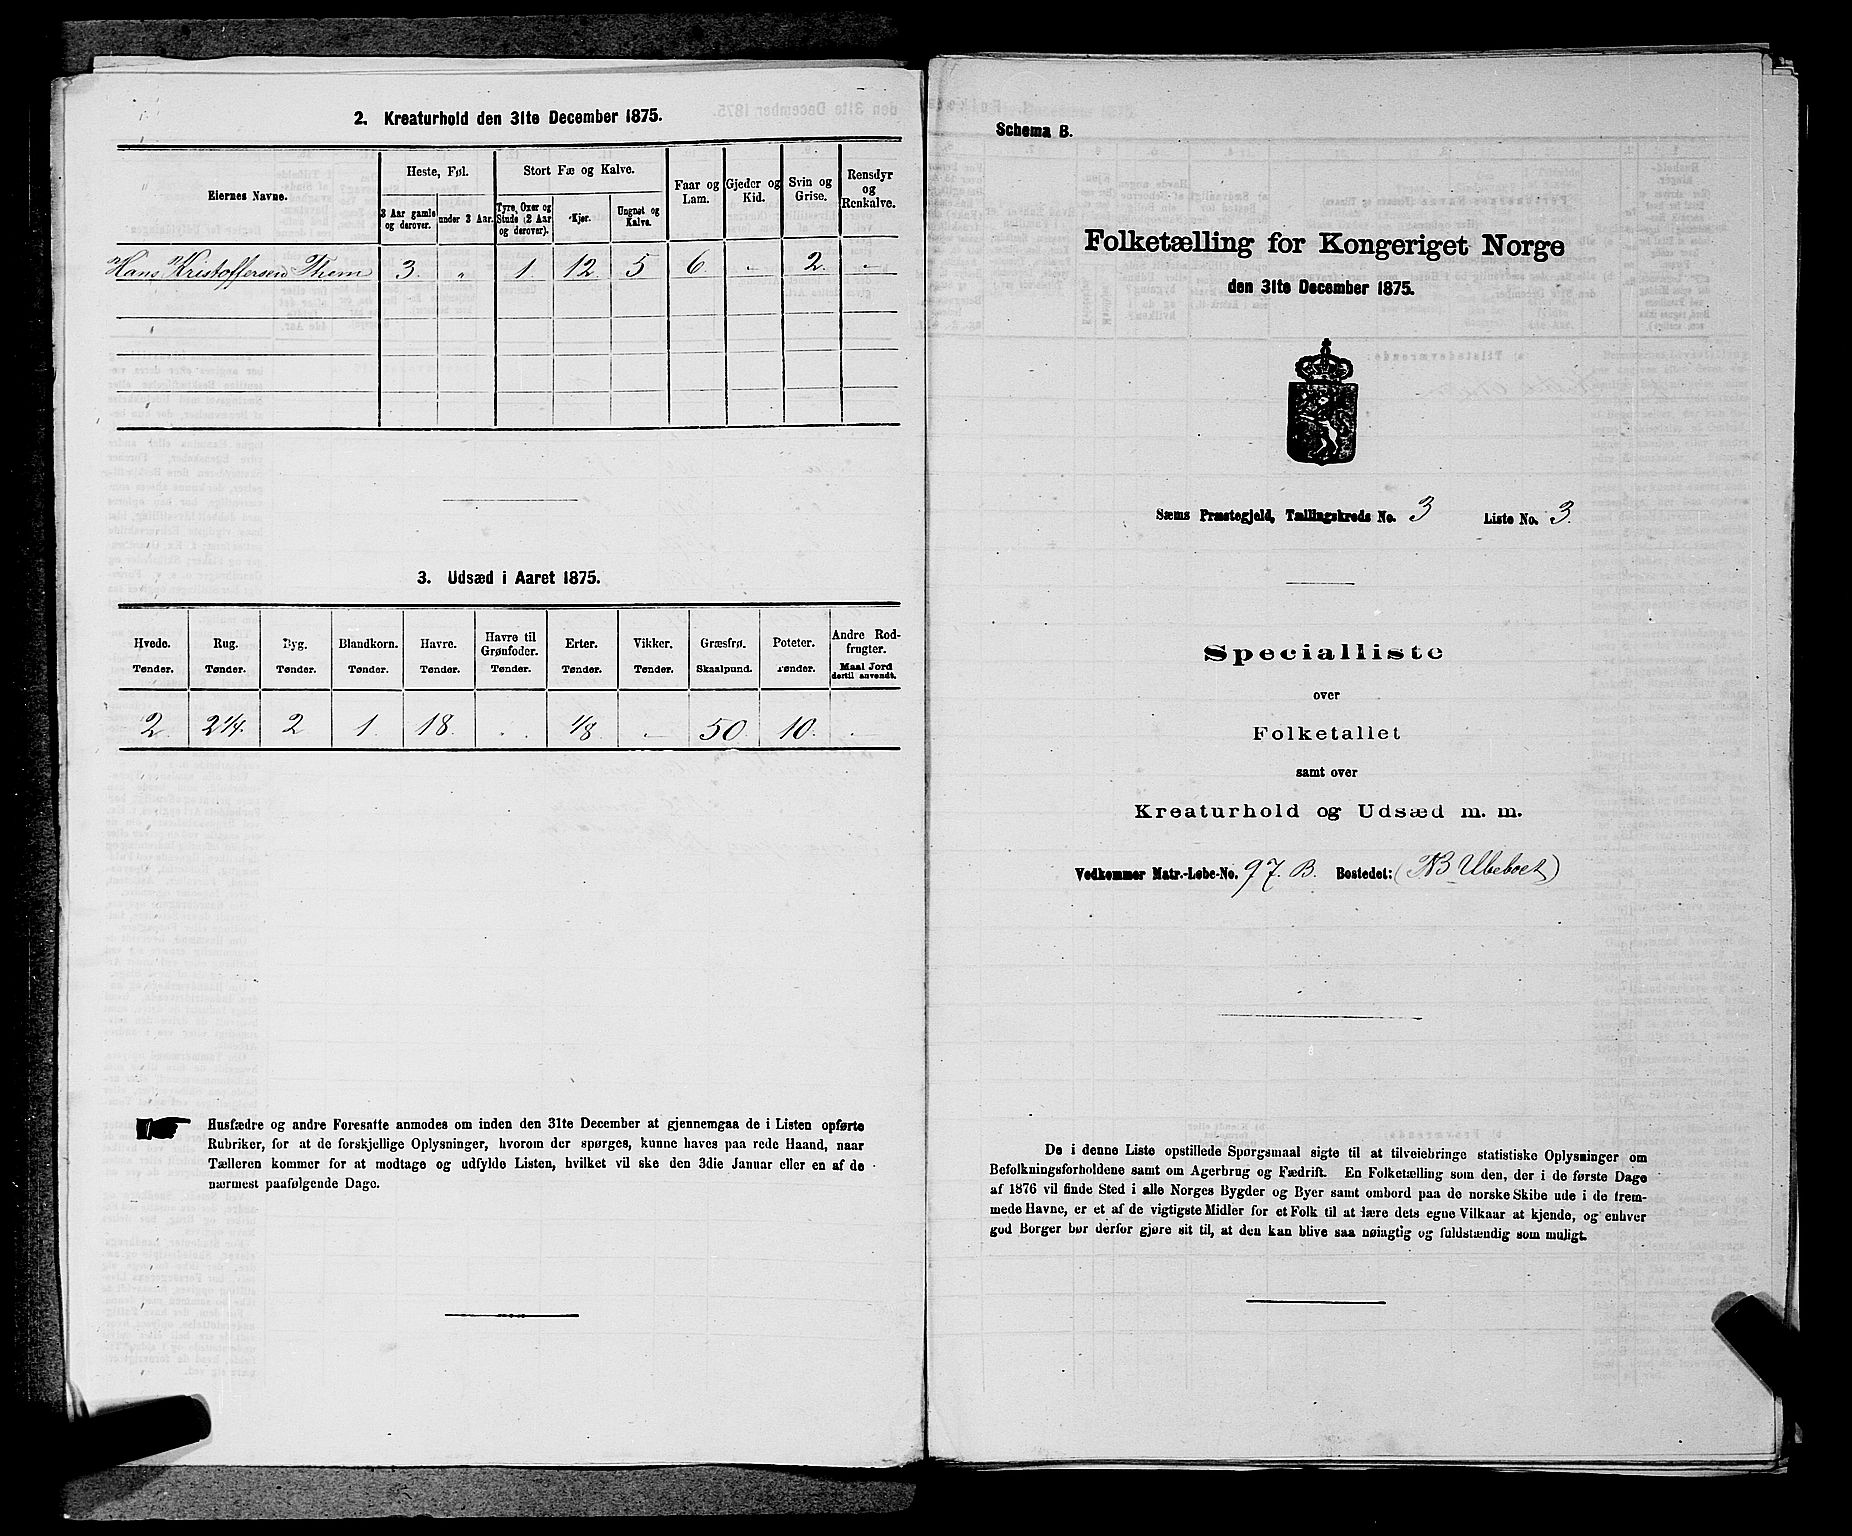 2. Kreaturhold den 31te December 1875.
Eiernes Navne.
Heste, Føl.
Stort Fæ og Kalve.
Faar og Lam.
Gjeder og Kid.
Svin og Grise.
Rensdyr og Renkalve.
3 Aar gamle og derover.
under 3 Aar.
Tyre, Oxer og Stude (2 Aar og derover).
Kjør.
Ungnøt og Kalve.
Hans Kristoffersen Them 3. „ 1. 12. 5 6. „ 2. „
3. Udsæd i Aaret 1875.
Hvede. Rug. Byg. Blandkorn. Havre. Havre til Grønfoder. Erter. Vikker. Græsfrø. Poteter. Andre Rodfrugter.
Tønder. Tønder. Tønder. Tønder. Tønder. Tønder. Tønder. Tønder. Skaalpund. Tønder. Maal Jord dertil anvendt.
2. 2 1/4. 2 1. 18. . . 1/8 . 50. 10. .
Husfædre og andre Foresatte anmodes om inden den 31te December at gjennemgaa de i Listen opførte
Rubriker, for at de forskjellige Oplysninger, hvorom der spørges, kunne haves paa rede Haand, naar
Tælleren kommer for at modtage og udfylde Listen, hvilket vil ske den 3die Januar eller en af de
nærmest paafølgende Dage.
Schema B.
Folketælling for Kongeriget Norge
den 31te December 1875.
Sæms Præstegjeld, Tællingskreds No. 3 Liste No. 3.
Specialliste
over
Folketallet
samt over
Kreaturhold og Udsæd m. m.
Vedkommer Matr.-Løbe-No. 97. B. Bostedet: (NB Ubeboet)
De i denne Liste opstillede Spørgsmaal sigte til at tilveiebringe statistiske Oplysninger om
Befolkningsforholdene samt om Agerbrug og Fædrift. En Folketælling som den, der i de første Dage
af 1876 vil finde Sted i alle Norges Bygder og Byer samt ombord paa de norske Skibe ude i de frem-
mede Havne, er et af de vigtigste Midler for et Folk til at lære dets egne Vilkaar at kjende, og enhver
god Borger bør derfor gjøre sit til, at den kan blive saa nøiagtig og fuldstændig som muligt.